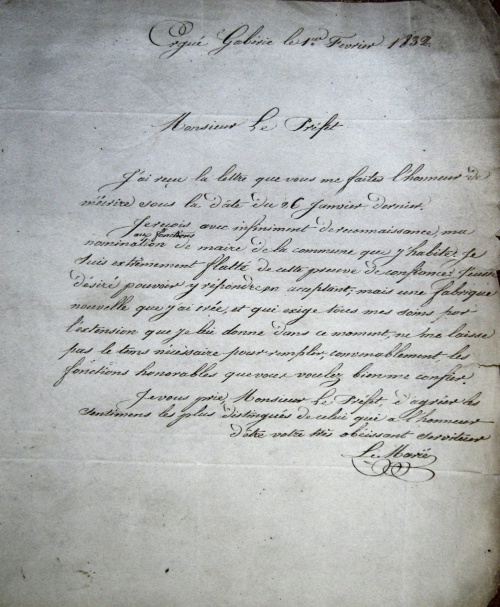 Ergué Gabéric le 1er Fevrier 1832.
Monsieur Le Préfet
J'ai reçu la lettre que vous me faites l'honneur de
m'écrire sous la date du 26 Janvier dernier.
Je reçois avec infiniment de reconnaissance, ma
aux fonctions
nomination de maire de la commune que j'habite. Je
suis extrêmement flatté de cette preuve de confiance. J'eusse
désiré pouvoir y répondre en acceptant, mais une fabrique
nouvelle que j'ai crée, et qui exige tous mes soins par
l'extension que je lui donne dans ce moment, ne me laisse
pas le tems nécessaire pour remplir convenablement les
fonctions honorables que vous voulez bien me confier.
Je vous prie, Monsieur Le Préfet d'agréer les
sentimens les plus distingués de celui qui a l'honneur
d'être votre très obéissant serviteur
Le Marié